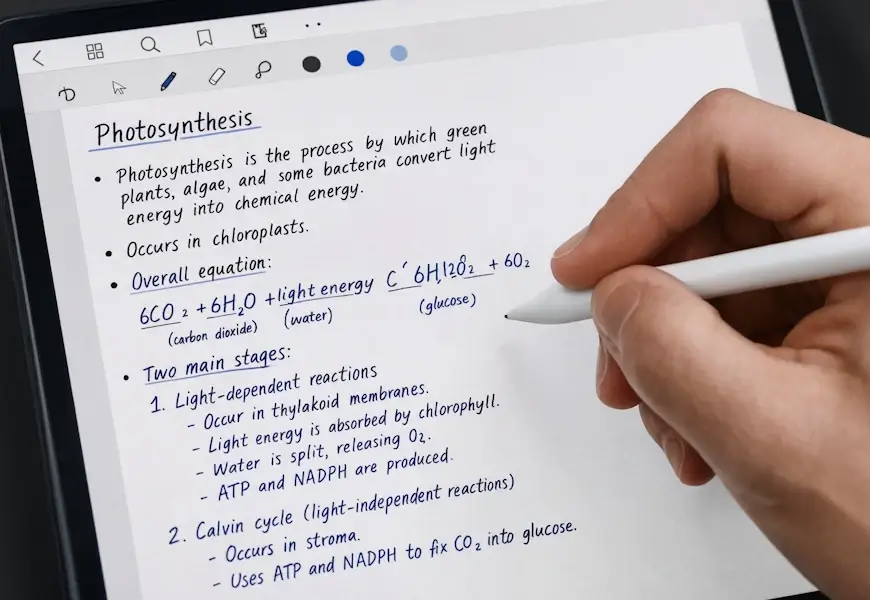 Photosynthesis
• Photosynthesis is the process by which green
plants, algae, and some bacteria convert light
energy into chemical energy.
• Occurs in chloroplasts.
• Overall equation:
6CO₂ + 6H₂O + light energy C´ 6H,12O₂ + 6O₂
(carbon dioxide) (water) (glucose)
• Two main stages:
1. Light-dependent reactions
- Occur in thylakoid membranes.
- Light energy is absorbed by chlorophyll.
- Water is split, releasing O₂.
- ATP and NADPH are produced.
2. Calvin cycle (light-independent reactions)
- Occurs in stroma.
- Uses ATP and NADPH to fix CO₂ into glucose.